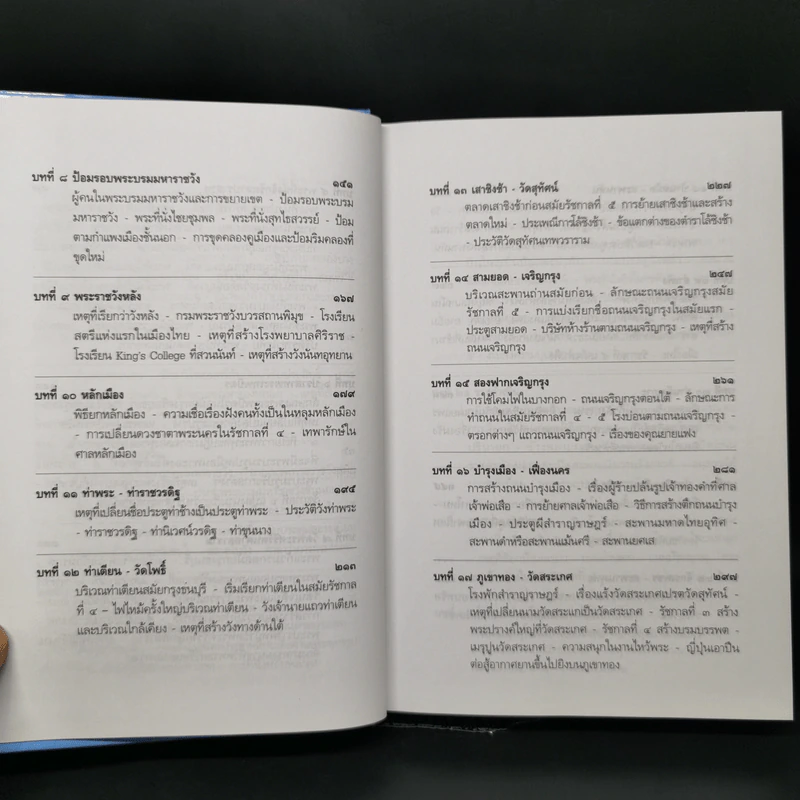 บทที่ ๘ ป้อมรอบพระบรมมหาราชวัง ๑๕๑
ผู้คนในพระบรมมหาราชวังและการขยายเขต - ป้อมรอบพระบรม
มหาราชวัง - พระที่นั่งไชยชุมพล - พระที่นั่งสุทไธสวรรย์ - ป้อม
ตามกำแพงเมืองชั้นนอก - การขุดคลองคูเมืองและป้อมริมคลองที่
ขุดใหม่
บทที่ ๙ พระราชวังหลัง ๑๖๗
เหตุที่เรียกว่าวังหลัง - กรมพระราชวังบวรสถานพิมุข - โรงเรียน
สตรีแห่งแรกในเมืองไทย - เหตุที่สร้างโรงพยาบาลศิริราช -
โรงเรียน King's College ที่สวนนันท์ - เหตุที่สร้างวังนันทอุทยาน
บทที่ ๑๐ หลักเมือง ๑๗๙
พิธียกหลักเมือง - ความเชื่อเรื่องฝังคนทั้งเป็นในหลุมหลักเมือง
- การเปลี่ยนดวงชาตาพระนครในรัชกาลที่ ๔ - เทพารักษ์ใน
ศาลหลักเมือง
บทที่ ๑๑ ท่าพระ - ท่าราชวรดิฐ ๑๙๕
เหตุที่เปลี่ยนชื่อประตูท่าช้างเป็นประตูท่าพระ - ประวัติวังท่าพระ
- ท่าราชวรดิฐ - ท่านิเวศน์วรดิฐ - ท่าขุนนาง
บทที่ ๑๒ ท่าเตียน - วัดโพธิ์ ๒๑๓
บริเวณท่าเตียนสมัยกรุงธนบุรี - เริ่มเรียกท่าเตียนในสมัยรัชกาล
ที่ ๔ – ไฟไหม้ครั้งใหญ่บริเวณท่าเตียน - วังเจ้านายแถวท่าเตียน
และบริเวณใกล้เคียง - เหตุที่สร้างวังทางด้านใต้
บทที่ ๑๓ เสาชิงช้า - วัดสุทัศน์ ๒๒๗
ตลาดเสาชิงช้าก่อนสมัยรัชกาลที่ ๕ การย้ายเสาชิงช้าและสร้าง
ตลาดใหม่ - ประเพณีการโล้ชิงช้า - ข้อแตกต่างของตำราโล้ชิงช้า
- ประวัติวัดสุทัศนเทพวราราม
บทที่ ๑๔ สามยอด - เจริญกรุง ๒๔๗
บริเวณสะพานถ่านสมัยก่อน - ลักษณะถนนเจริญกรุงสมัย
รัชกาลที่ ๕ - การแบ่งเรียกชื่อถนนเจริญกรุงในสมัยแรก -
ประตูสามยอด - บริษัทห้างร้านตามถนนเจริญกรุง - เหตุที่สร้าง
ถนนเจริญกรุง
บทที่ ๑๕ สองฟากเจริญกรุง ๒๖๑
การใช้โคมไฟในบางกอก - ถนนเจริญกรุงตอนใต้ - ลักษณะการ
ทำถนนในสมัยรัชกาลที่ ๔ - ๕ โรงบ่อนตามถนนเจริญกรุง -
ตรอกต่างๆ แถวถนนเจริญกรุง - เรื่องของคุณยายแฟง
บทที่ ๑๖ บำรุงเมือง - เฟื่องนคร ๒๘๑
การสร้างถนนบำรุงเมือง - เรื่องผู้ร้ายปล้นรูปเจ้าทองคำที่ศาล
เจ้าพ่อเสือ - การย้ายศาลเจ้าพ่อเสือ - วิธีการสร้างตึกถนนบำรุง
เมือง - ประตูผีสำราญราษฎร์ - สะพานมหาดไทยอุทิศ -
สะพานดำหรือสะพานแม้นศรี - สะพานยศเส
บทที่ ๑๗ ภูเขาทอง - วัดสระเกศ ๒๙๗
โรงพักสำราญราษฎร์ - เรื่องแร้งวัดสระเกศเปรตวัดสุทัศน์ -
เหตุที่เปลี่ยนนามวัดสระแกเป็นวัดสระเกศ - รัชกาลที่ ๓ สร้าง
พระปรางค์ใหญ่ที่วัดสระเกศ - รัชกาลที่ ๔ สร้างบรมบรรพต -
เมรุปูนวัดสระเกศ - ความสนุกในงานไหว้พระ - ญี่ปุ่นเอาปืน
ต่อสู้อากาศยานขึ้นไปยิงบนภูเขาทอง